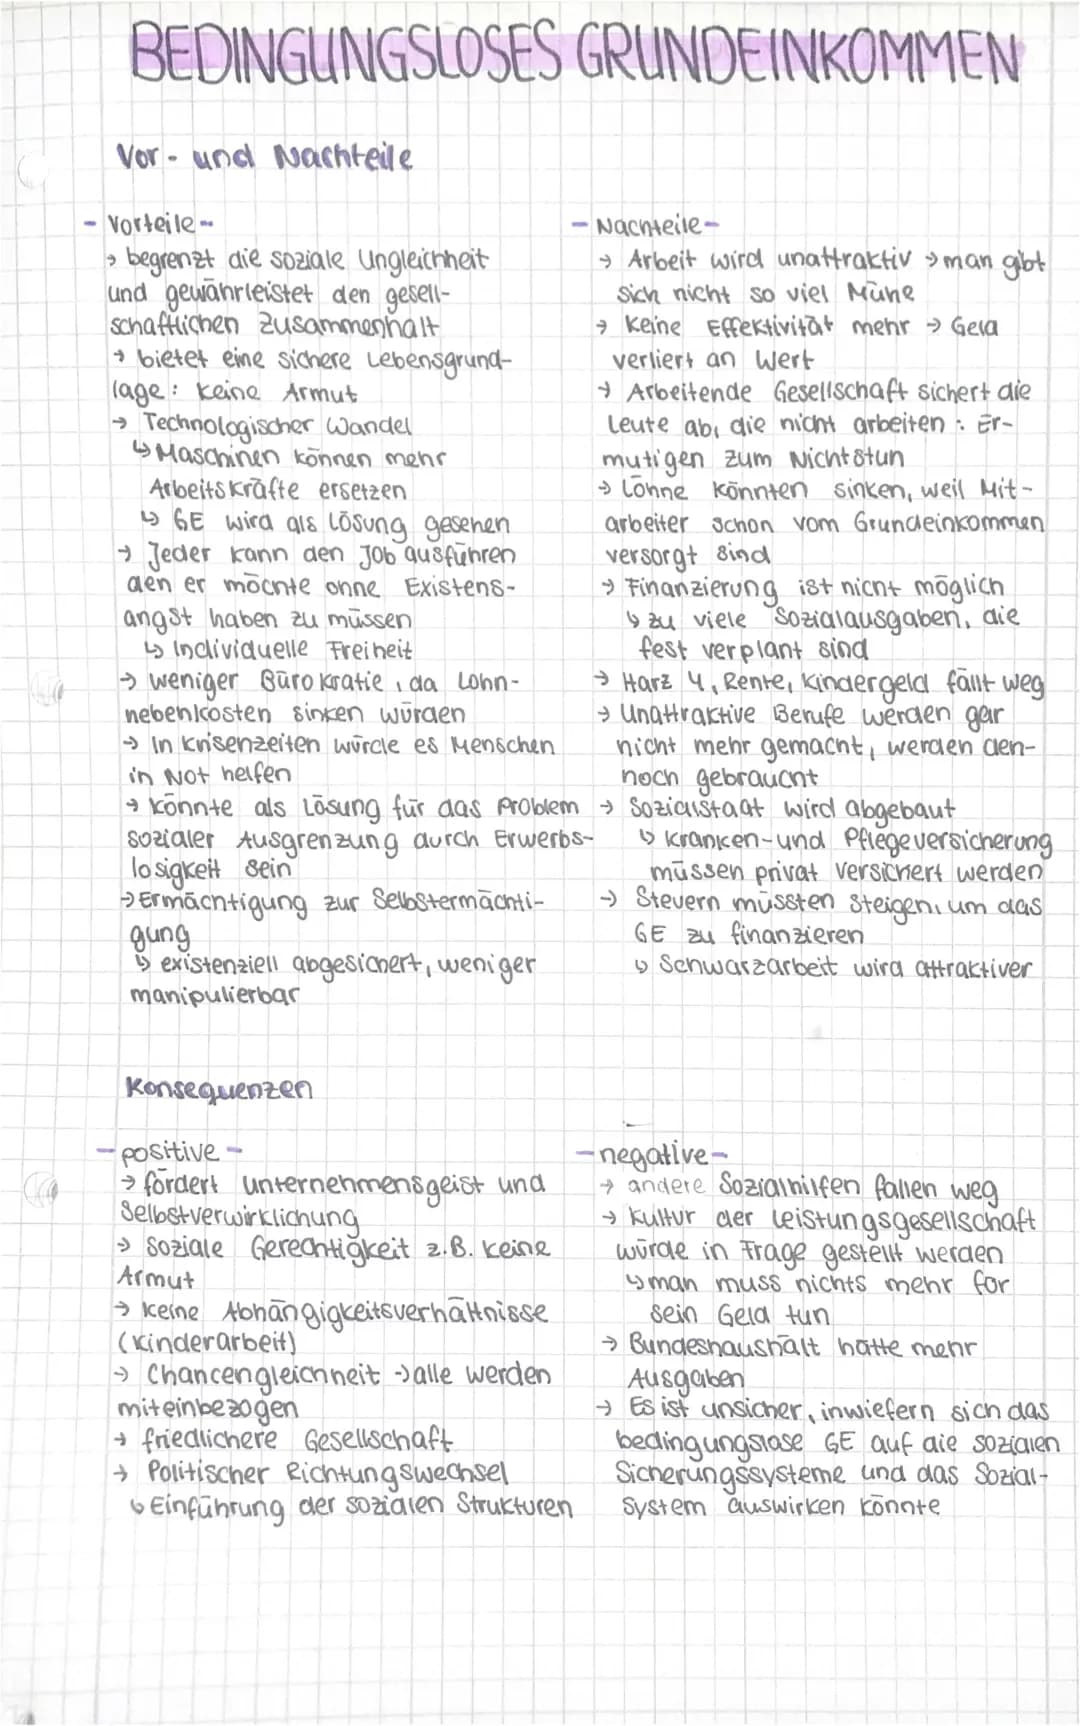 BEDINGUNGSLOSES GRUNDEINKOMMEN
Vor- und Nachteile
- Vorteile -
→ begrenzt die soziale Ungleichheit
und gewährleistet den gesell-
schaftlichen Zusammenhalt
→ bietet eine sichere Lebensgrund-
lage: keine Armut
→ Technologischer Wandel
↳ Maschinen können mehr
Arbeitskräfte ersetzen
↳ GE wird als Lösung gesehen
→ Jeder kann den Job ausführen
den er möchte ohne Existens-
angst haben zu müssen
↳ Individuelle Freiheit
→ weniger Bürokratie, da Lohn-
nebenkosten sinken würden
→ In Krisenzeiten würde es Menschen
in Not helfen
→ könnte als Lösung für das Problem
sozialer Ausgrenzung durch Erwerbs-
losigkeit sein
→ Ermächtigung zur Selbstermächti-
gung
↳ existenziell abgesichert, weniger
manipulierbar
- Nachteile -
→ Arbeit wird unattraktiv → man gibt
sich nicht so viel Mühe
→ Keine Effektivität mehr → Geld
verliert an Wert
→ Arbeitende Gesellschaft sichert die
Leute ab, die nicht arbeiten : Er-
mutigen zum Nichtstun
→ Löhne könnten sinken, weil Mit-
arbeiter schon vom Grundeinkommen
versorgt sind
→ Finanzierung ist nicht möglich
↳ zu viele Sozialausgaben, die
fest verplant sind
→ Harz 4, Rente, Kindergeld fällt weg
→ Unattraktive Berufe werden gar
nicht mehr gemacht, werden den-
noch gebraucht
→ Sozialstaat wird abgebaut
↳ Kranken- und Pflegeversicherung
müssen privat versichert werden
→ Steuern müssten steigen, um das
GE zu finanzieren
↳ Schwarzarbeit wird attraktiver
Konsequenzen
- positive -
→ fördert unternehmensgeist und
Selbstverwirklichung
→ Soziale Gerechtigkeit z.B. keine
Armut
→ keine Abhängigkeitsverhältnisse
(Kinderarbeit)
→ Chancengleichheit → alle werden
miteinbezogen
→ friedlichere Gesellschaft
→ Politischer Richtungswechsel
↳ Einführung der sozialen Strukturen
- negative -
→ andere Sozialhilfen fallen weg
→ Kultur der Leistungsgesellschaft
würde in Frage gestellt werden
↳ man muss nichts mehr for
sein Geld tun
→ Bundeshaushalt hätte mehr
Ausgaben
→ Es ist unsicher, inwiefern sich das
bedingungslose GE auf die sozialen
Sicherungssysteme und das Sozial-
system auswirken könnte